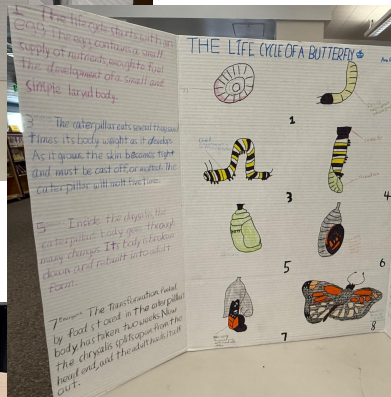 1- The life cycle starts with an
egg. The egg contains a small
supply of nutrients, enough to fuel
the development of a small and
simple larval body.
3 The caterpillar eats several thousand
times its body weight as it develops.
As it grows the skin becomes tight
and must be cast off, or molted. The
caterpillar will molt five times.
5- Inside the chrysalis the
caterpillar body goes through
many changes. Its body is broken
down and rebuilt into adult
form.
7 The transformation, fueled
by food stored in the caterpillar
body, has taken two weeks. Now
the chrysalis splits open from the
head end, and the adult hauls itself
out.
THE LIFE CYCLE OF A BUTTERFLY
1
3
4
5
6
7
8